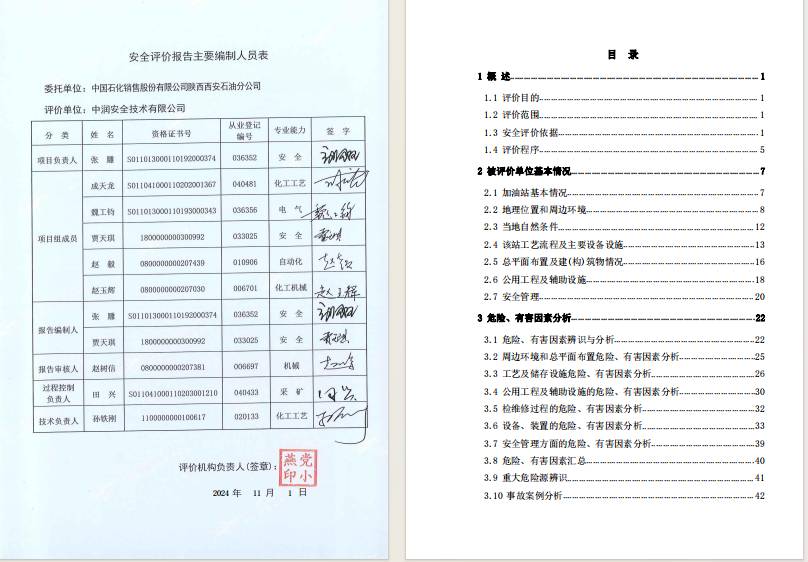 安全评价报告主要编制人员表
委托单位：中国石化销售股份有限公司陕西西安石油分公司
评价单位：中润安全技术有限公司
分 类 姓 名 资格证书号 从业登记编号 专业能力 签 字
项目负责人 张 雕 S011013000110192000374 036352 安 全
项目组成员 成天龙 S011041000110202001367 040481 化工工艺
魏工钧 S011013000110193000343 036356 电 气
贾天琪 1800000000300992 033025 安 全
赵 毅 0800000000207439 010906 自动化
赵玉辉 0800000000207030 006701 化工机械
报告编制人 张 雕 S011013000110192000374 036352 安 全
贾天琪 1800000000300992 033025 安 全
报告审核人 赵树信 0800000000207381 006697 机械
过程控制负责人 田 兴 S011041000110203001210 040433 采 矿
技术负责人 孙铁刚 1100000000100617 020133 化工工艺
评价机构负责人(签章)：
燕党印小
2024 年 11 月 1 日
目 录
1 概 述 1
1.1 评价目的 1
1.2 评价范围 1
1.3 安全评价依据 1
1.4 评价程序 5
2 被评价单位基本情况 7
2.1 加油站基本情况 7
2.2 地理位置和周边环境 8
2.3 当地自然条件 12
2.4 该站工艺流程及主要设备设施 13
2.5 总平面布置及建(构)筑物情况 16
2.6 公用工程及辅助设施 18
2.7 安全管理 20
3 危险、有害因素分析 22
3.1 危险、有害因素辨识与分析 22
3.2 周边环境和总平面布置危险、有害因素分析 25
3.3 工艺及储存设施危险、有害因素分析 26
3.4 公用工程及辅助设施的危险、有害因素分析 30
3.5 检维修过程的危险、有害因素分析 32
3.6 设备、装置的危险、有害因素分析 33
3.7 安全管理方面的危险、有害因素分析 39
3.8 危险、有害因素汇总 40
3.9 重大危险源辨识 41
3.10 事故案例分析 42